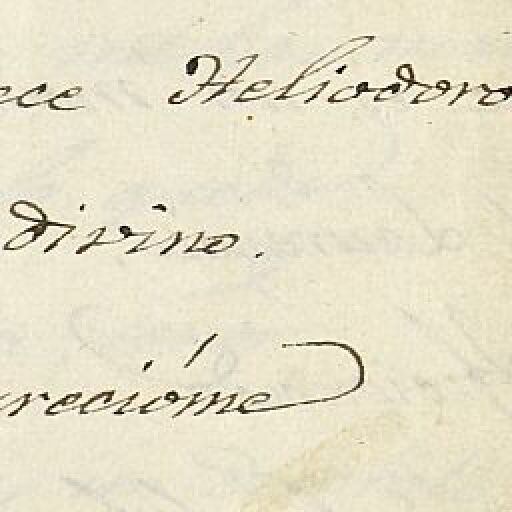 ece Heliodoro
divino.
urecióme